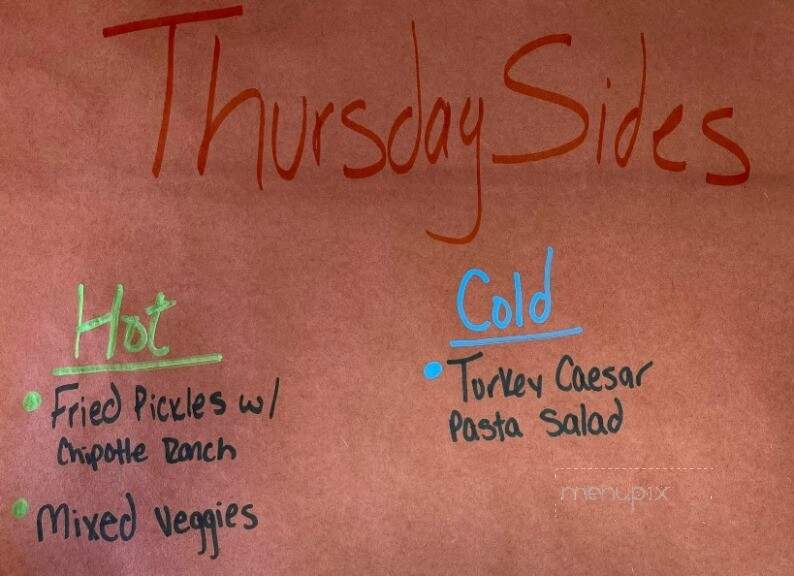 Thursday Sides
Hot
Cold
• Fried Pickles w/
Chipotle Ranch
• Mixed Veggies
• Turkey Caesar
Pasta Salad
menupix